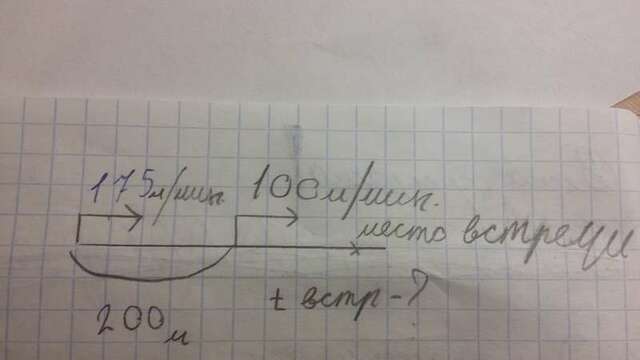 175м/мин. 100м/мин.
место встречи
t встр-?
200м